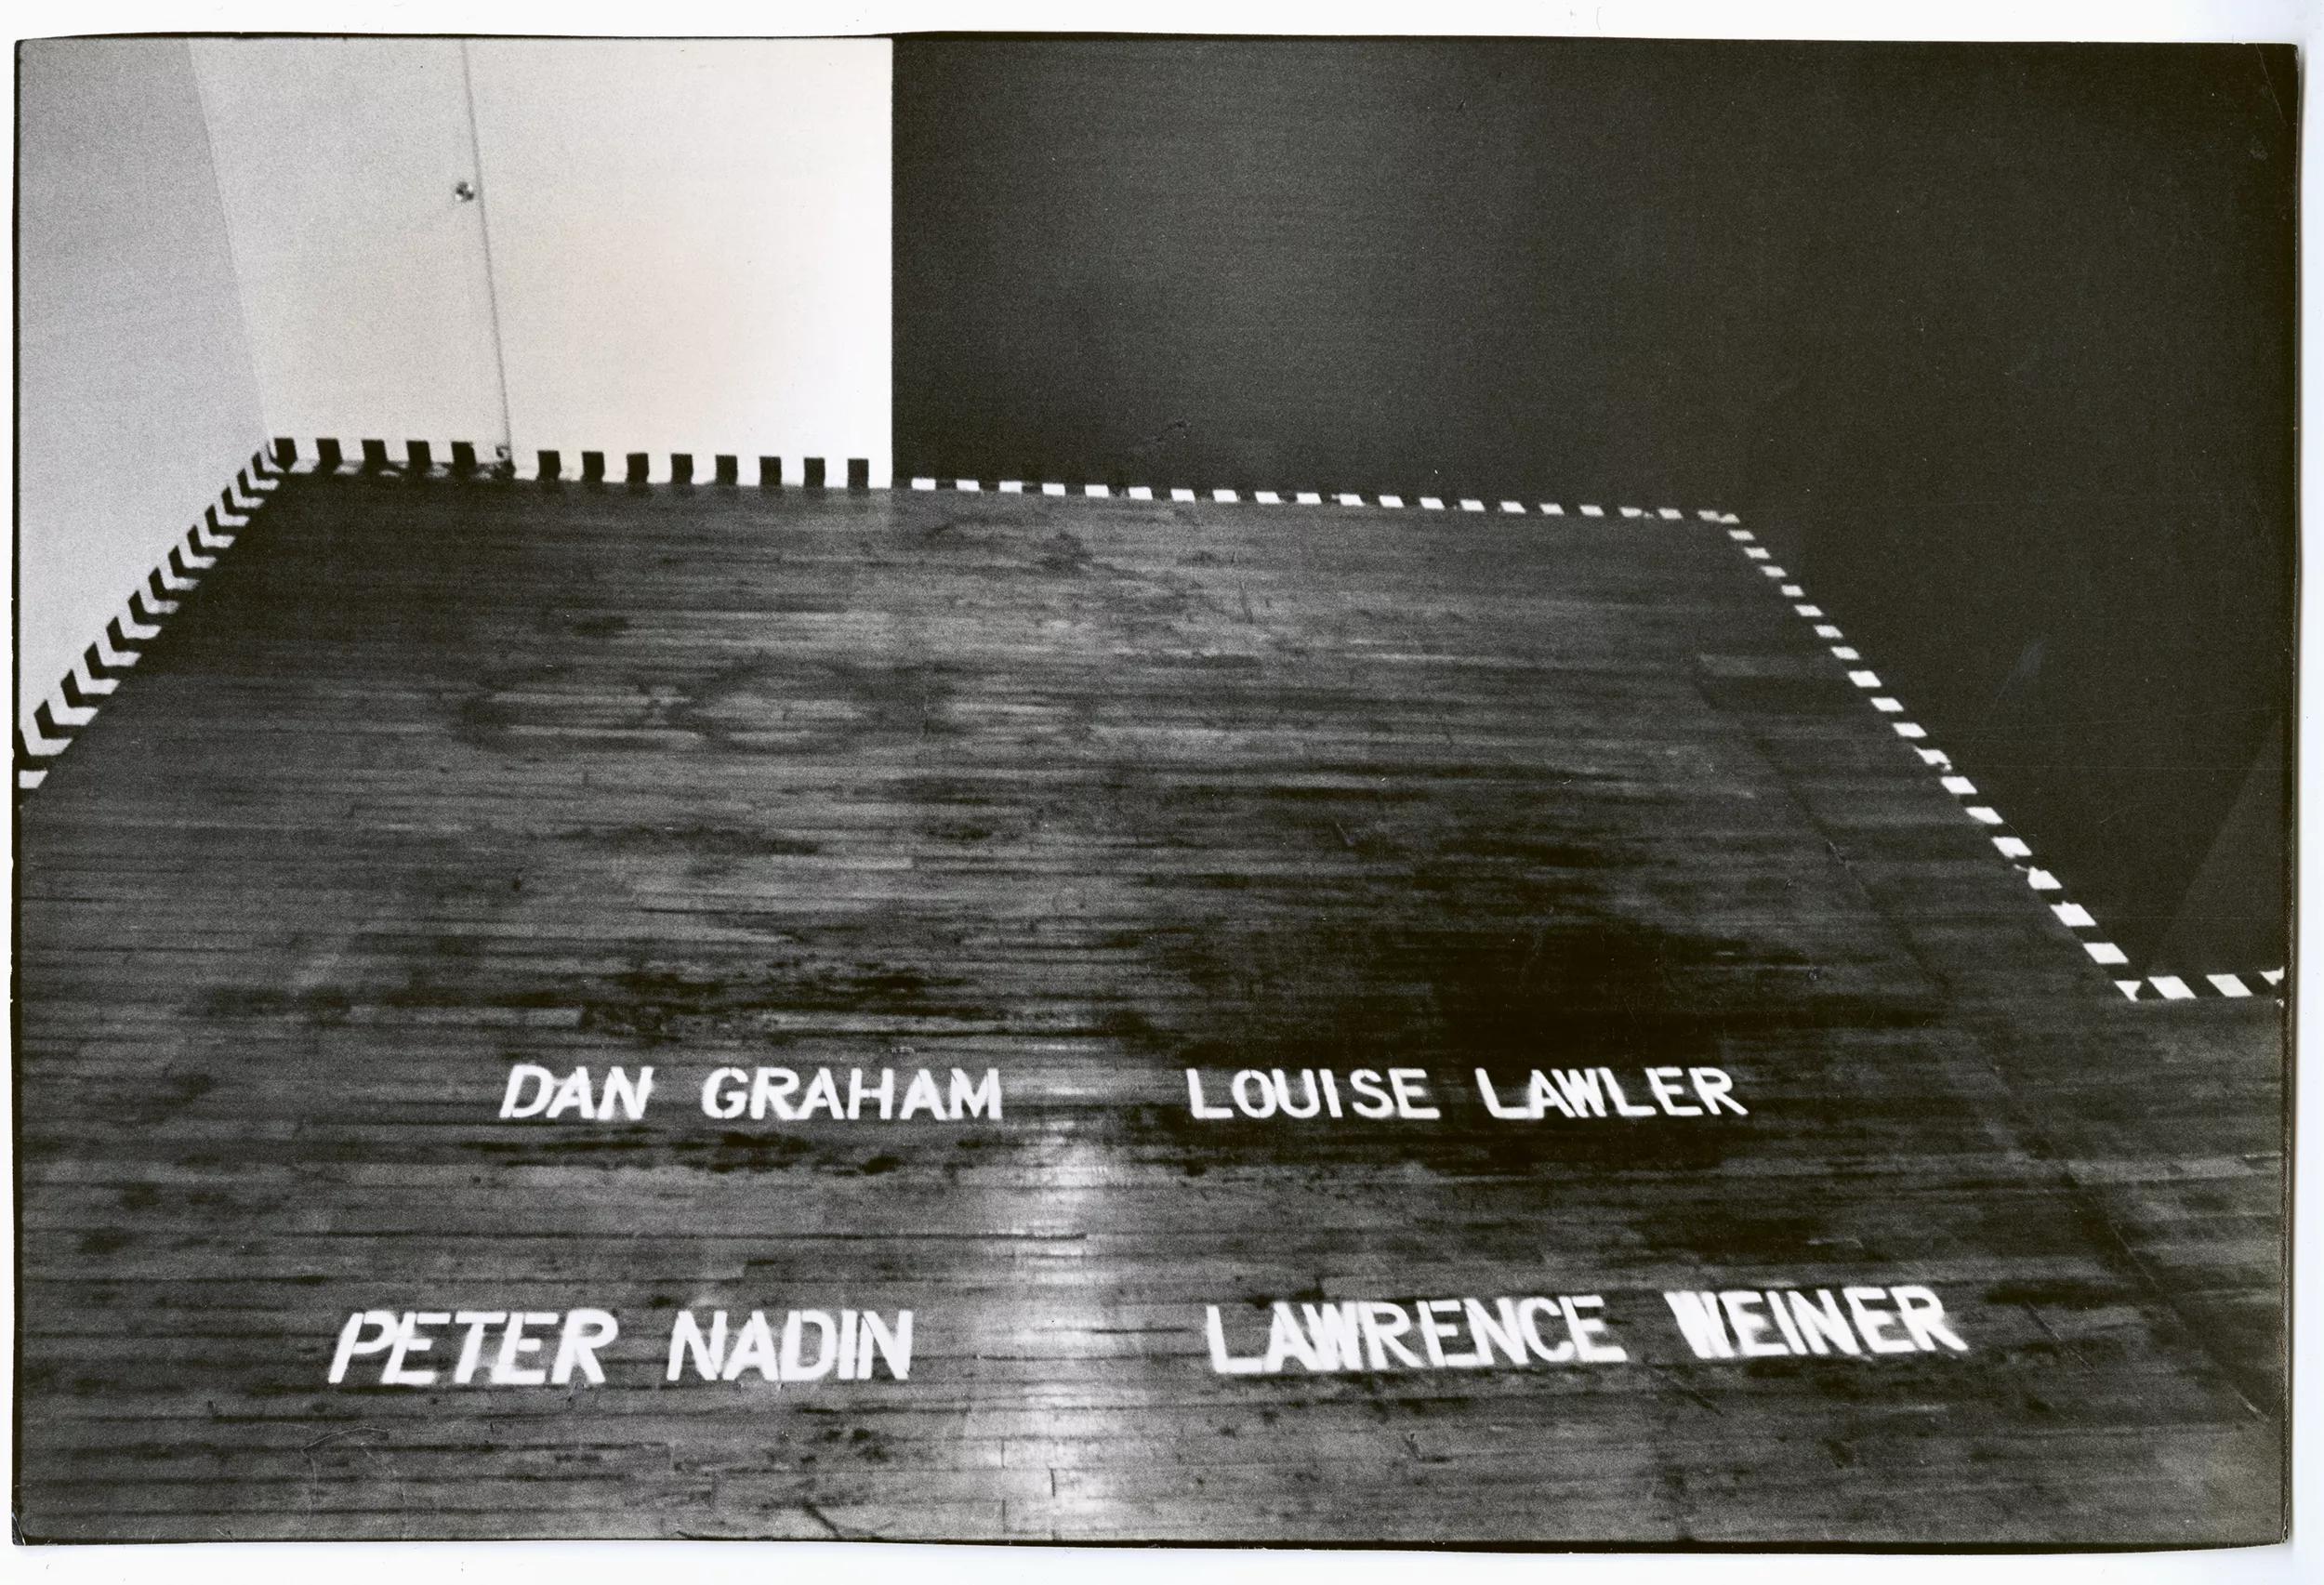 DAN GRAHAM LOUISE LAWLER
PETER NADIN LAWRENCE WEINER